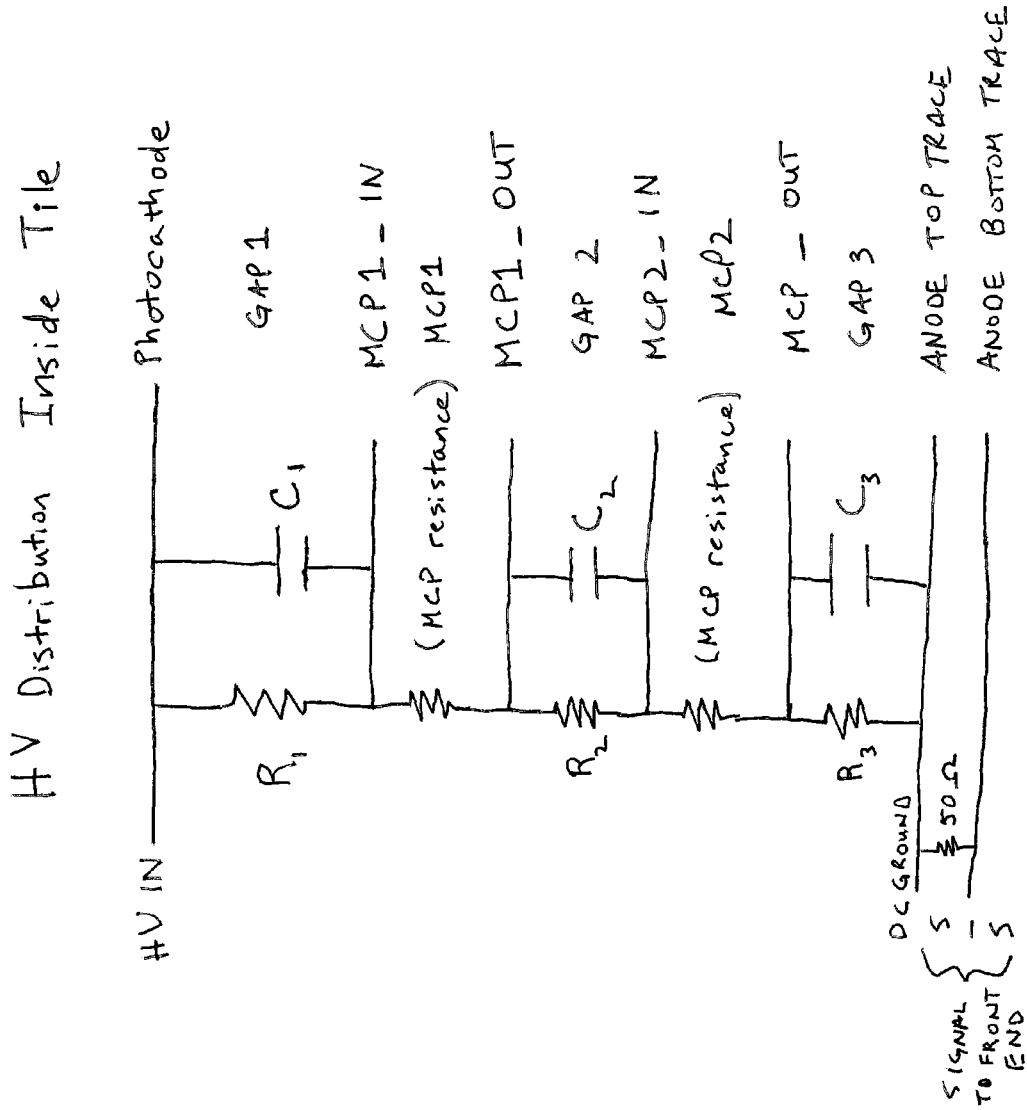 HV Distribution Inside Tile
HV IN
Photocathode
R1
C1
GAP1
MCP1_IN
(MCP resistance)
MCP1
MCP1_OUT
R2
C2
GAP 2
MCP2_IN
(MCP resistance)
MCP2
MCP_OUT
R3
C3
GAP 3
DC GROUND
ANODE TOP TRACE
50Ω
ANODE BOTTOM TRACE
SIGNAL
TO FRONT
END
S
S